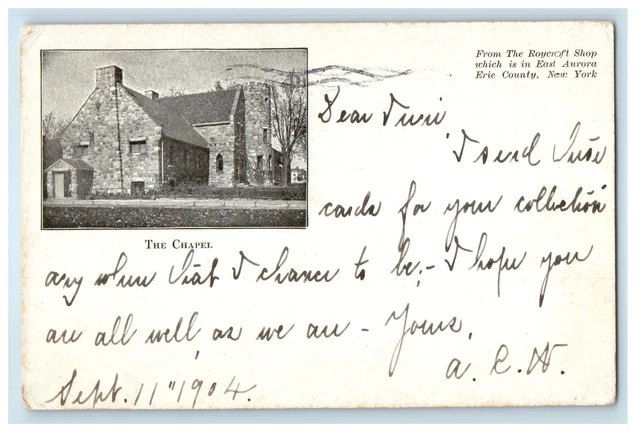 From The Roycroft Shop
which is in East Aurora
Erie County, New York
Dear
I send these
cards for your collection
any where that I chance to be, - I hope you
are all well as we are - Yours,
A. L. W.
Sept. 11" 1904.
The Chapel